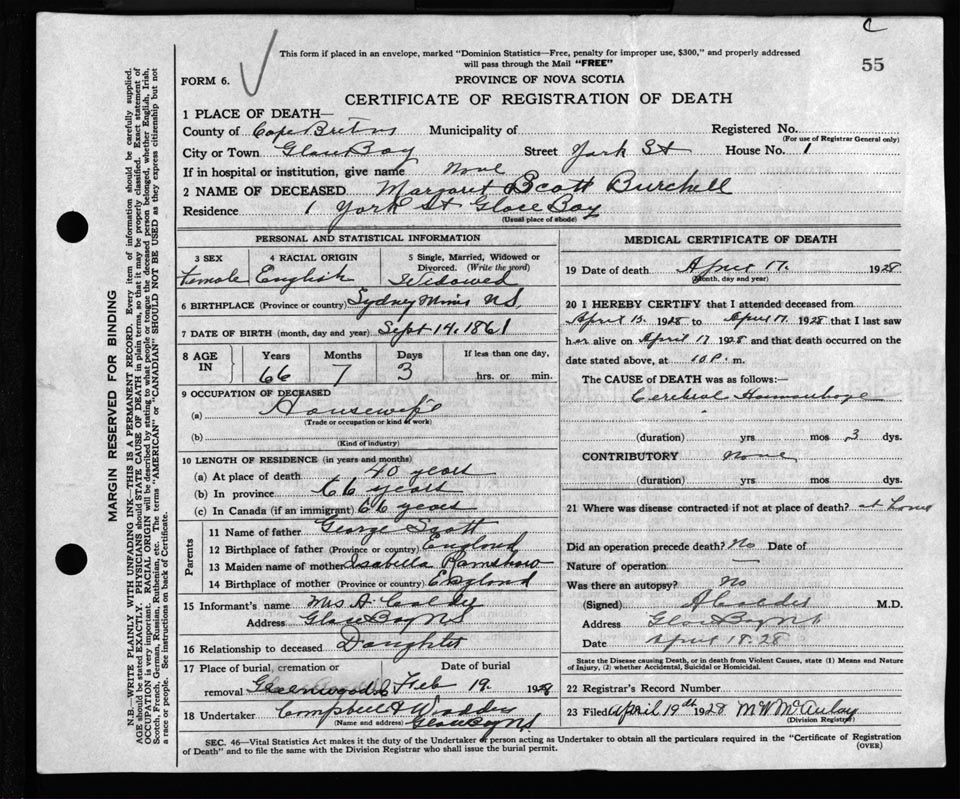 C
55
This form if placed in an envelope, marked "Dominion Statistics—Free, penalty for improper use, $300," and properly addressed
will pass through the Mail "FREE"
FORM 6.
PROVINCE OF NOVA SCOTIA
CERTIFICATE OF REGISTRATION OF DEATH
1 PLACE OF DEATH—
County of Cape Breton Municipality of Registered No.
(For use of Registrar General only)
City or Town Glace Bay Street York St House No. 1
If in hospital or institution, give name None
2 NAME OF DECEASED Margaret Scott Burchell
Residence 1 York St Glace Bay
(Usual place of abode)
PERSONAL AND STATISTICAL INFORMATION
3 SEX 4 RACIAL ORIGIN 5 Single, Married, Widowed or
Divorced. (Write the word)
Female English Widowed
6 BIRTHPLACE (Province or country) Sydney Mines NS.
7 DATE OF BIRTH (month, day and year) Sept 14. 1861
8 AGE IN Years Months Days If less than one day,
66 7 3 hrs. or min.
9 OCCUPATION OF DECEASED
(a) Housewife
(Trade or occupation or kind of work)
(b)
(Kind of industry)
10 LENGTH OF RESIDENCE (in years and months)
(a) At place of death 40 years
(b) In province 66 years
(c) In Canada (if an immigrant) 66 years
Parents
11 Name of father George Scott
12 Birthplace of father (Province or country) England
13 Maiden name of mother Isabella Ramshaw
14 Birthplace of mother (Province or country) England
15 Informant's name Mrs A Calder
Address Glace Bay NS
16 Relationship to deceased Daughter
17 Place of burial, cremation or Date of burial
removal Greenwood Feb 19. 1928
18 Undertaker Campbell &
(Name and address) Glace Bay NS.
MEDICAL CERTIFICATE OF DEATH
19 Date of death April 17. 1928
(Month, day and year)
20 I HEREBY CERTIFY that I attended deceased from
April 15. 1928 to April 17. 1928 that I last saw
her alive on April 17 1928 and that death occurred on the
date stated above, at 10 P. m.
The CAUSE OF DEATH was as follows:—
Cerebral Haemorrhage
(duration) yrs mos 3 dys.
CONTRIBUTORY none
(duration) yrs mos dys.
21 Where was disease contracted if not at place of death? at home
Did an operation precede death? No Date of
Nature of operation —
Was there an autopsy? No
(Signed) A Calder M.D.
Address Glace Bay NS
Date April 18. 28
State the Disease causing Death, or in death from Violent Causes, state (1) Means and Nature
of Injury, (2) whether Accidental, Suicidal or Homicidal.
22 Registrar's Record Number
23 Filed April 19th 1928 M W McAulay
(Division Registrar)
SEC. 46—Vital Statistics Act makes it the duty of the Undertaker or person acting as Undertaker to obtain all the particulars required in the "Certificate of Registration
of Death" and to file the same with the Division Registrar who shall issue the burial permit.
(OVER)
MARGIN RESERVED FOR BINDING
N.B.—WRITE PLAINLY WITH UNFADING INK—THIS IS A PERMANENT RECORD. Every item of information should be carefully supplied.
AGE should be stated EXACTLY. PHYSICIANS should STATE CAUSE OF DEATH in plain terms, so that it may be properly classified. Exact statement of
OCCUPATION is very important. RACIAL ORIGIN will be described by stating to what people or tongue the deceased person belonged, whether English, Irish,
Scotch, French, German, Russian, Ruthenian, etc. The terms "AMERICAN" or "CANADIAN" SHOULD NOT BE USED as they express citizenship but not
a race or people. See instructions on back of Certificate.